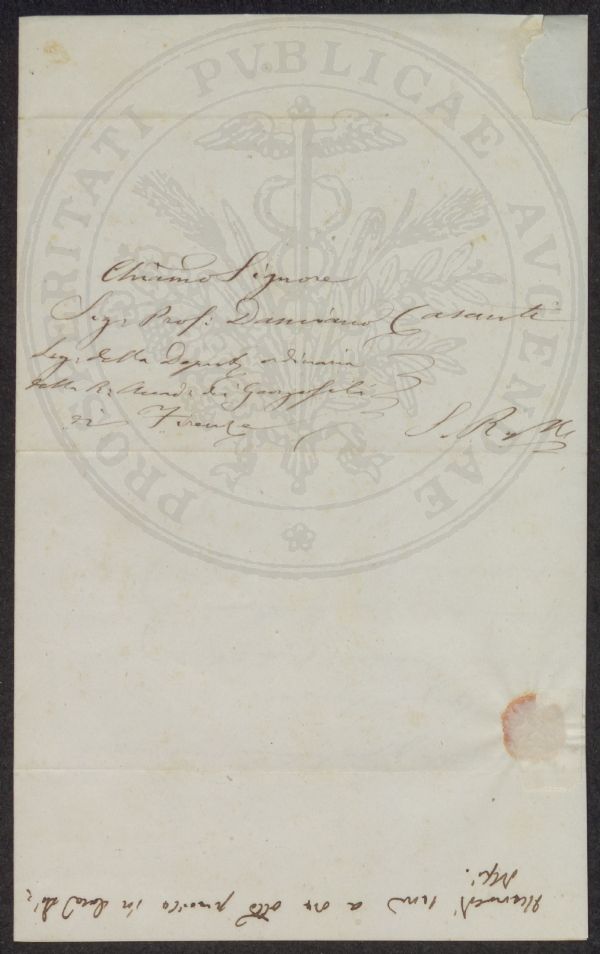 PROSPERITATI PVBLICAE AVGENDAE
Chiarmo Signore
Sigr Prof: Damiano Casanti
Seg: della Deputz ordinaria
della R. Accad. dei Georgofili
di Firenze
S. R. M.
a ore otto